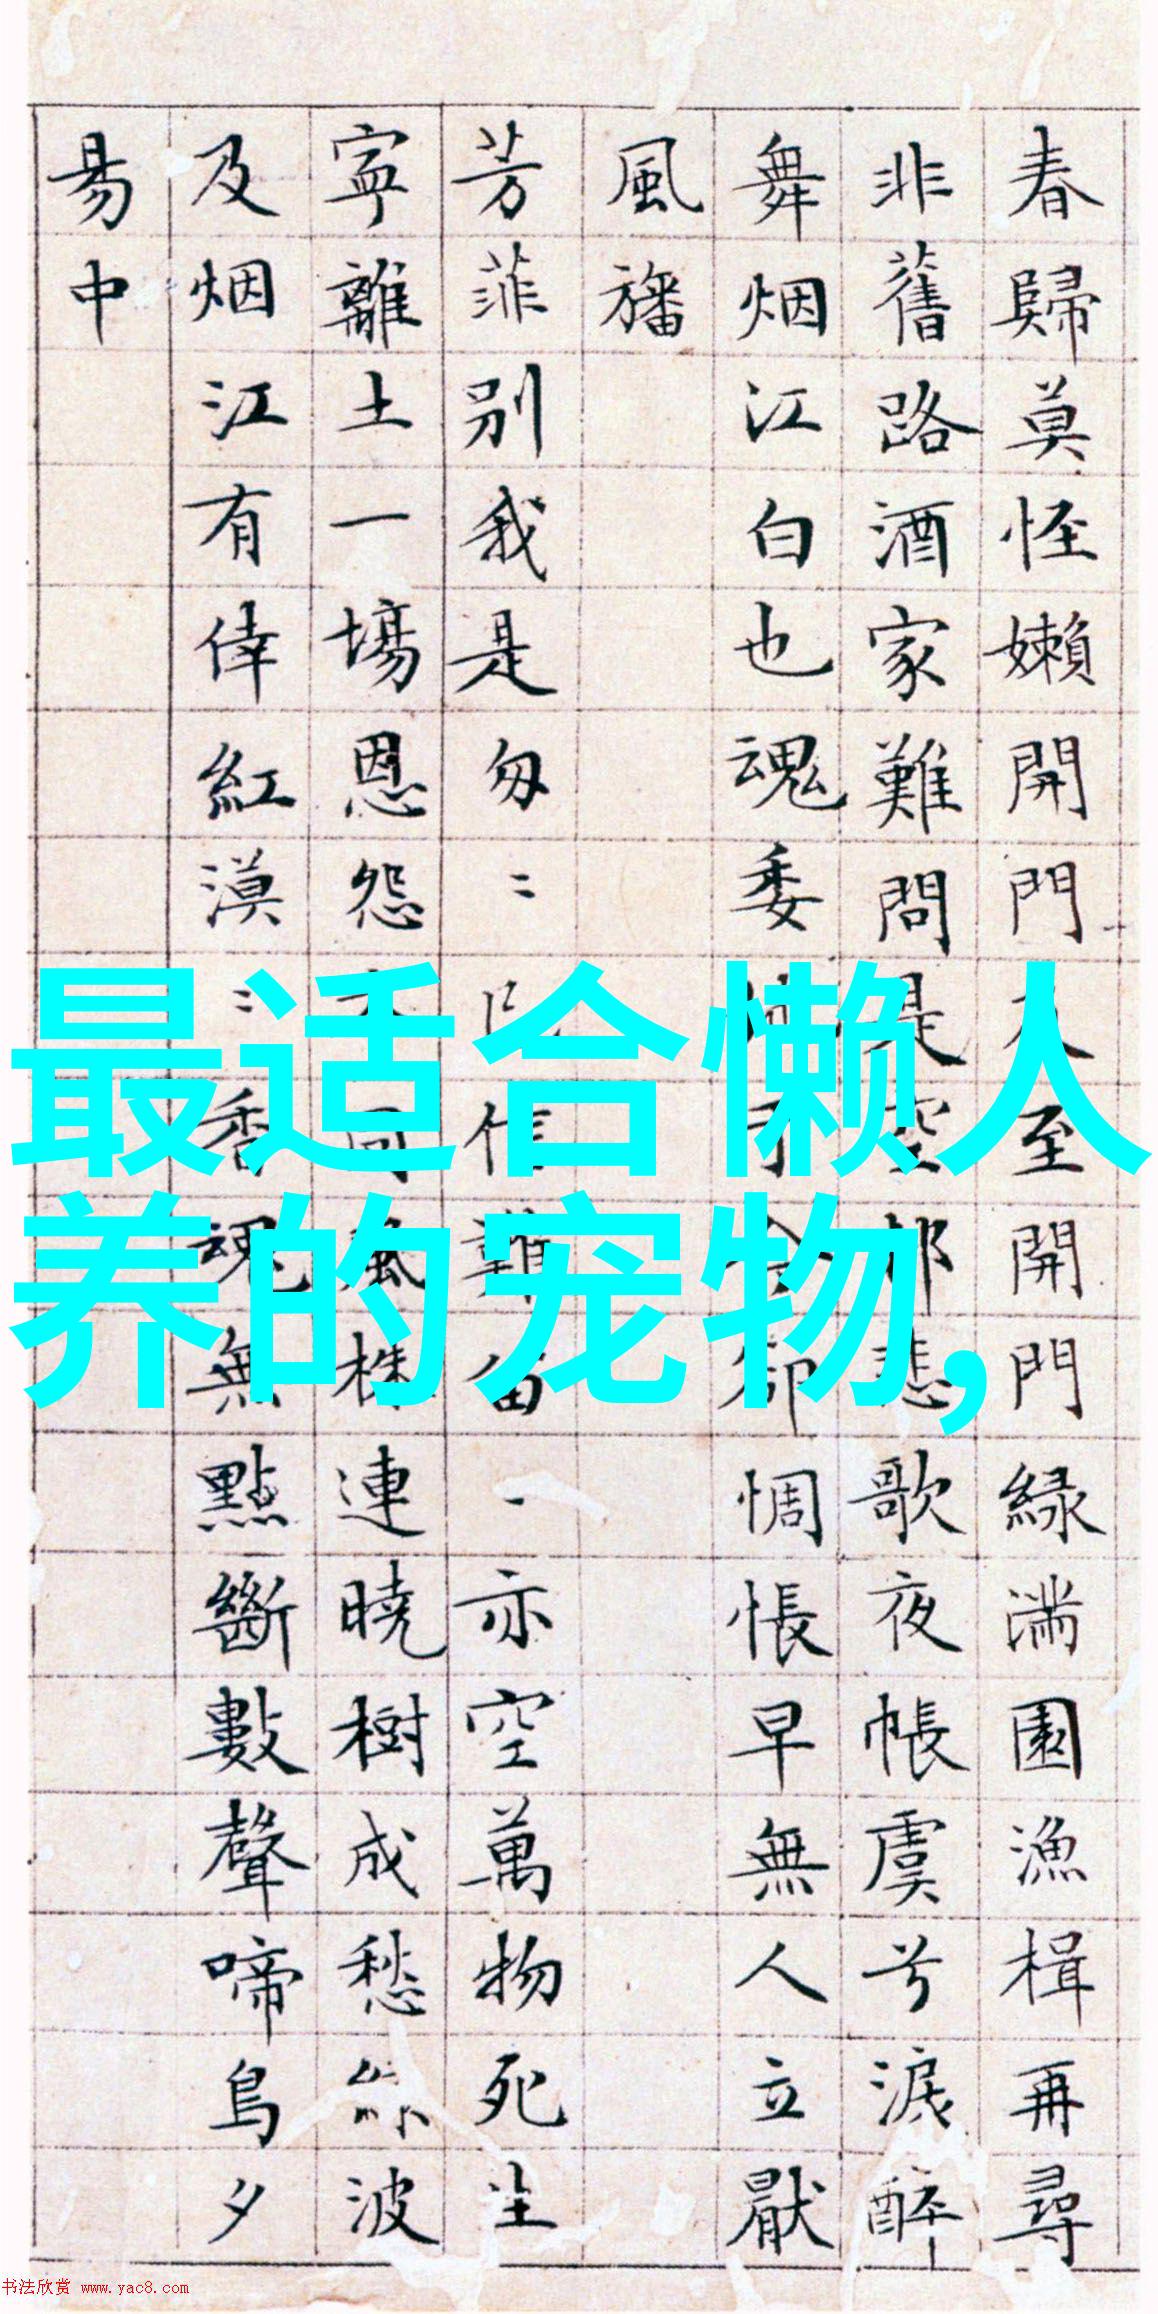 春歸莫怪嬾開門
至開門緑滿園漁楫再尋
非舊路酒家難問是空
悲歌夜帳虞兮淚醉
舞烟江白也魂委
惆悵早無人立厭
風旛
芳菲别我是匆〻
難留一亦空萬物死生
寧離土一場恩怨
風株連曉樹成愁綠波
及烟江有倖紅漠〻香魂無點斷數聲啼鳥夕
易中
最适合懒人
养的宠物,
书法欣赏 www.yac8.com